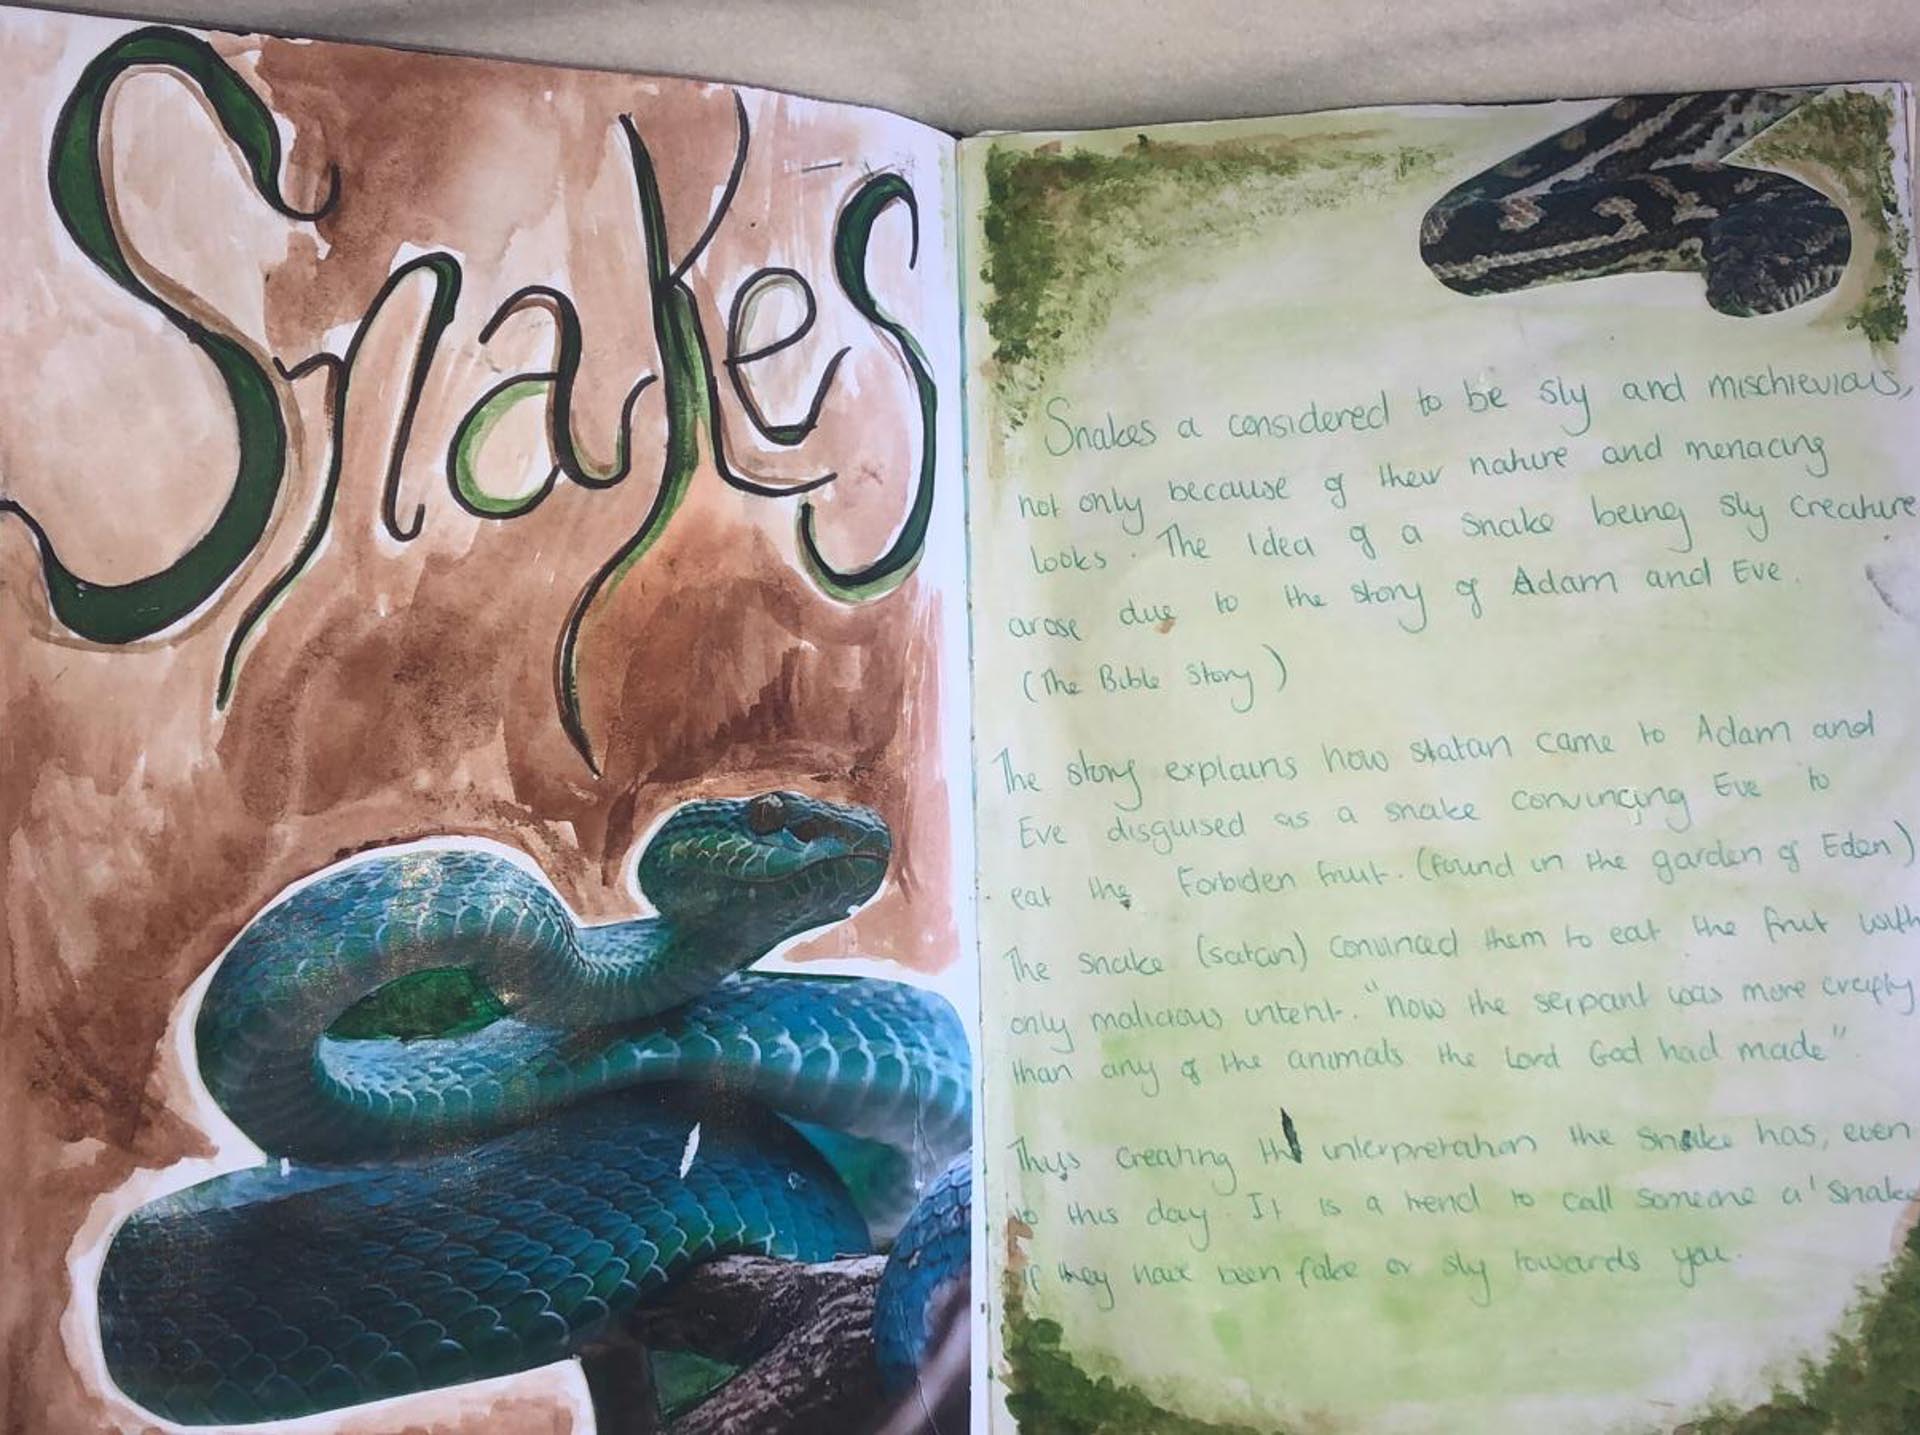 Snakes
Snakes a considered to be sly and mischievious,
not only because of their nature and menacing
looks. The idea of a snake being sly creature
arose due to the story of Adam and Eve.
(The Bible Story)
The story explains how satan came to Adam and
Eve disguised as a snake convincing Eve to
eat the Forbiden fruit. (found in the garden of Eden)
The snake (satan) convinced them to eat the fruit with
only malicious intent. "now the serpant was more crafty
than any of the animals the Lord God had made".
Thus creating the interpretation the snake has, even
to this day. It is a trend to call someone a 'snake
if they have been fake or sly towards you.